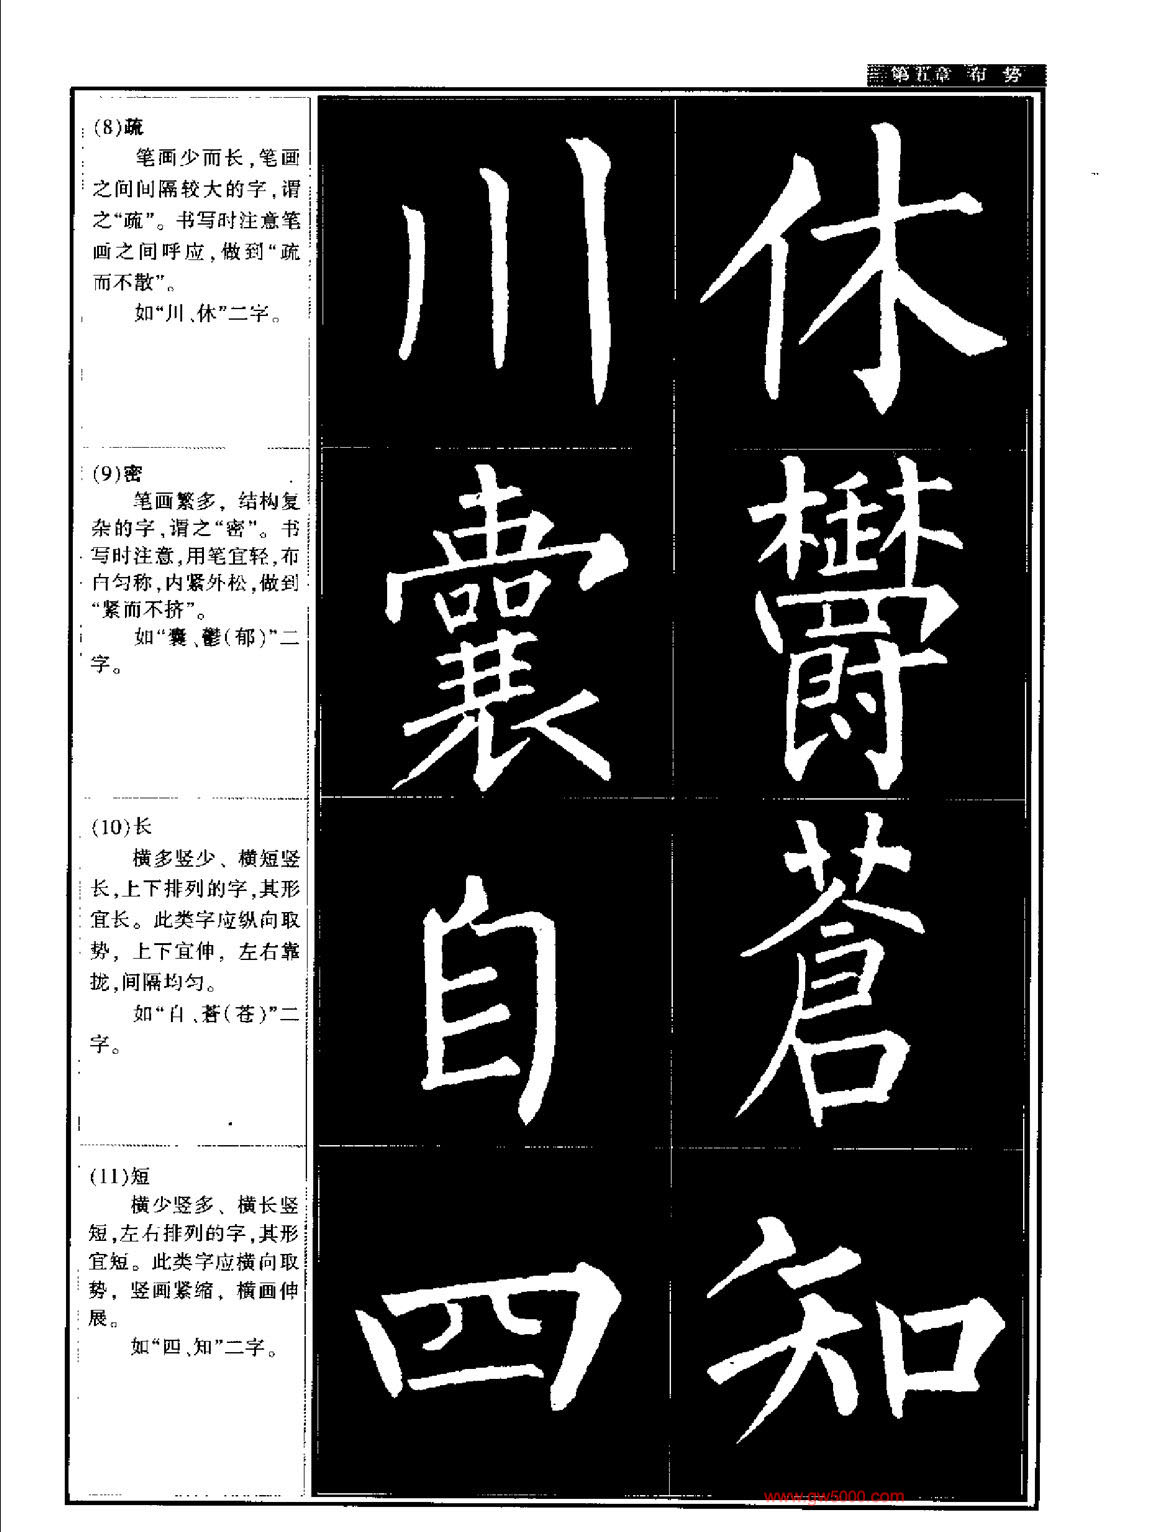 第五章 布势
(8)疏
笔画少而长,笔画
之间间隔较大的字,谓
之“疏”。书写时注意笔
画之间呼应,做到“疏
而不散”。
如“川、休”二字。
川 休
(9)密
笔画繁多，结构复
杂的字,谓之“密”。书
写时注意,用笔宜轻,布
白匀称,内紧外松,做到
“紧而不挤”。
如“囊、鬱(郁)”二
字。
囊 鬱
(10)长
横多竖少、横短竖
长,上下排列的字,其形
宜长。此类字应纵向取
势，上下宜伸，左右靠
拢,间隔均匀。
如“自、蒼(苍)”二
字。
自 蒼
(11)短
横少竖多、横长竖
短,左右排列的字,其形
宜短。此类字应横向取
势，竖画紧缩，横画伸
展。
如“四、知”二字。
四 知
www.gw5000.com